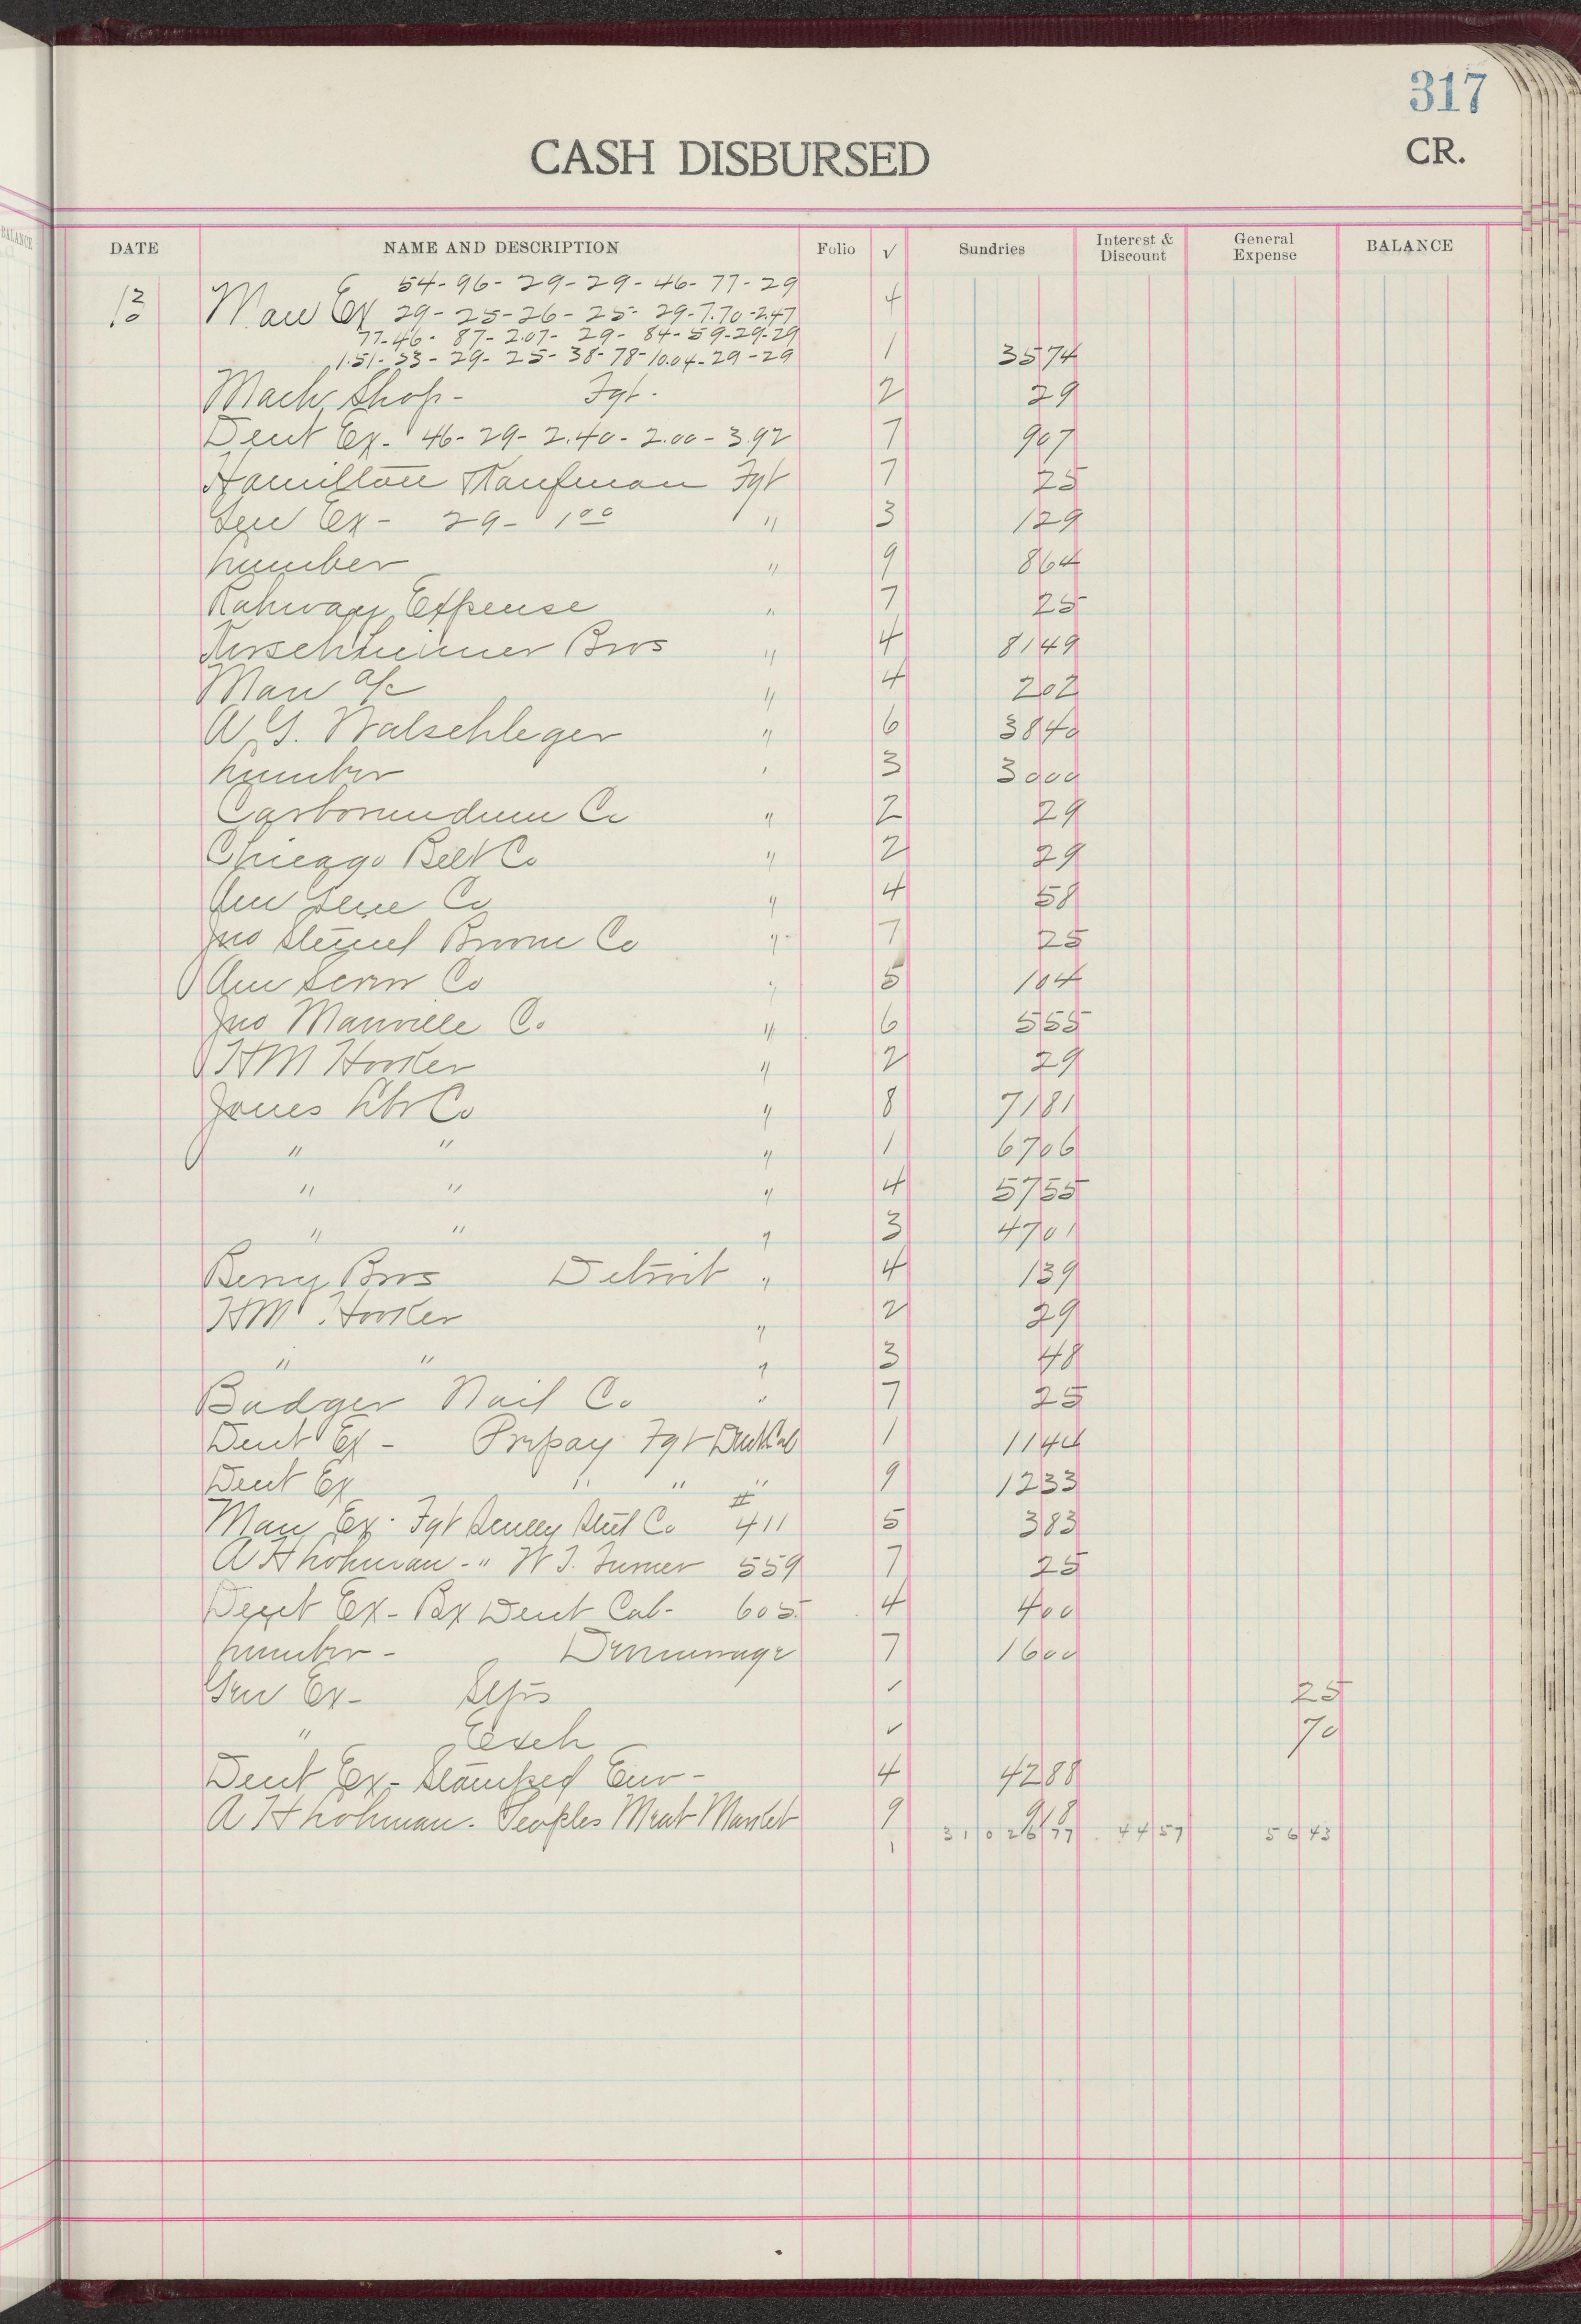 317
CASH DISBURSED
CR.
DATE NAME AND DESCRIPTION Folio √ Sundries Interest & Discount General Expense BALANCE
54-96-29-29-46-77-29
Man Ex 29-25-26-25-29-7.70-2.47 4
77-46-87-2.07-29-84-59-29-29
1.51-53-29-25-38-78-10.04-29-29 1 3574
Mach Shop- Fgt. 2 29
Dent Ex- 46-29-2.40-2.00-3.92 7 907
Hamilton Kaufman Fgt 7 25
Gen Ex- 29- 1 00 " 3 129
Lumber " 9 864
Rahway Expense " 7 25
Bros " 4 8149
Man a/c " 4 202
A. G. Walschleger " 6 3840
Lumber " 3 3000
Carborundum Co " 2 29
Chicago Belt Co " 2 29
Am Co " 4 58
Jno Broom Co " 7 25
Am Screw Co " 5 104
Jno Manville Co. " 6 555
HM Hooker " 2 29
Jones Lbr Co " 8 7181
" " " 1 6706
" " " 4 5755
" " " 3 4701
Berry Bros Detroit " 4 139
HM Hooker " 2 29
" " " 3 48
Badger Nail Co " 7 25
Dent Ex- Prepay Fgt Dent Cab 1 1144
Dent Ex " " " 9 1233
Man Ex. Fgt Steel Co # 411 5 383
A H Lohman - " W. J. Turner 559 7 25
Dent Ex- Bx Dent Cab- 605 4 400
Lumber- Demurrage 7 1600
Gen Ex- ✓ 25
" Exch ✓ 70
Dent Ex- Stamped Env- 4 4288
A H Lohman. Peoples Meat Market 9 918
1 3102677 4457 5643